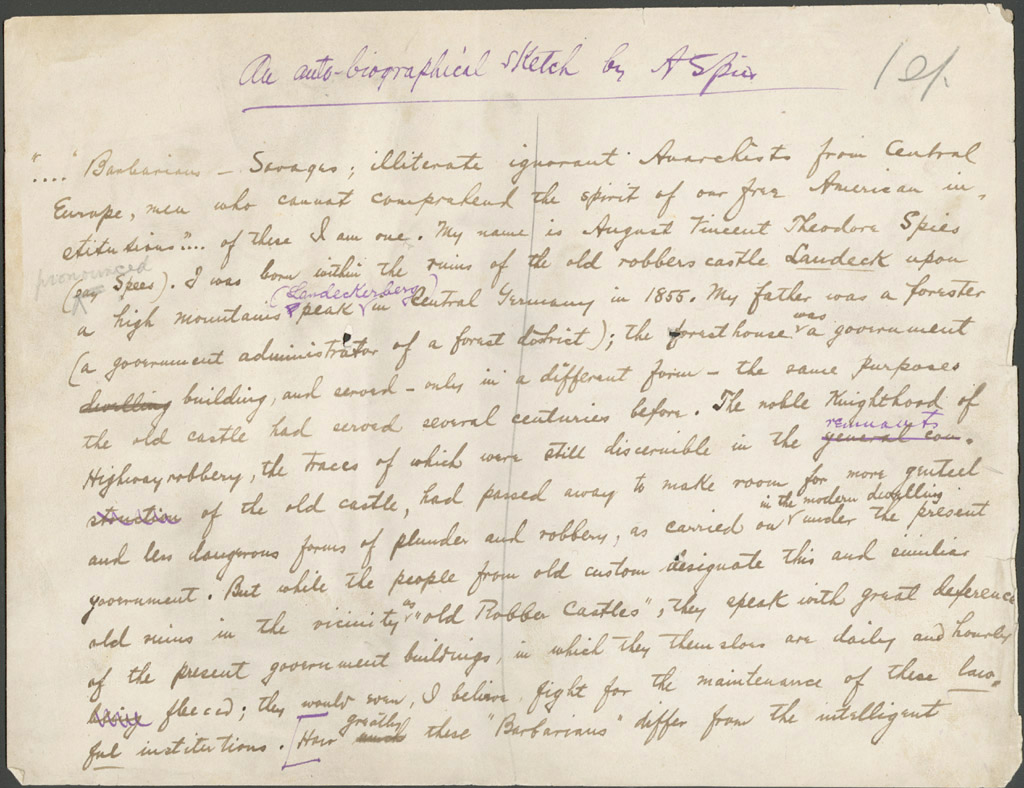 An auto-biographical sketch by A Spies
".... Barbarians – Savages; illiterate ignorant Anarchists from Central
Europe, men who cannot comprehend the spirit of our free American in-
stitutions".... of these I am one. My name is August Vincent Theodore Spies
pronounced
(say Spees). I was born within the ruins of the old robbers castle Landeck upon
(Landeckerberg)
a high mountains peak in Central Germany in 1855. My father was a forester
was
(a government administrator of a forest district); the forest house a government
dwelling building, and served – only in a different form – the same purposes
the old castle had served several centuries before. The noble Knighthood of
remnants
Highway robbery, the traces of which were still discernible in the general con-
struction of the old castle, had passed away to make room for more genteel
in the modern dwelling
and less dangerous forms of plunder and robbery, as carried on under the present
government. But while the people from old custom designate this and similiar
as
old ruins in the vicinity "old Robber Castles", they speak with great deference
of the present government buildings, in which they themselves are daily and hourly
being fleeced; they would even, I believe, fight for the maintenance of these law-
greatly
ful institutions. [How much these "Barbarians" differ from the intelligent